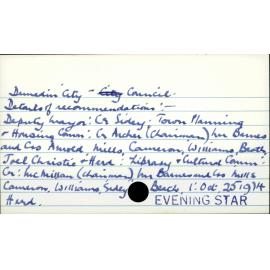 Dunedin City - City Council.
Details of recommendations:-
Deputy Mayor: Cr Sidey: Town Planning
& Housing Comm: Cr Archer (Chairman) Mrs Barnes
and Crs Arnold Mills, Cameron, Williams,
Joel Christie & Herd: Library & Cultural Comm:
Cr: McMillan (Chairman) Mrs Barnes and Crs Mills
Cameron, Williams, Sidey Beck, 1: Oct 25 1974
Herd. EVENING STAR